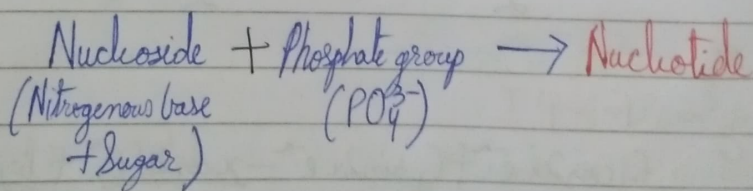 Nucleoside + Phosphate group → Nucleotide
(Nitrogenous base (PO₄³⁻)
+ Sugar)